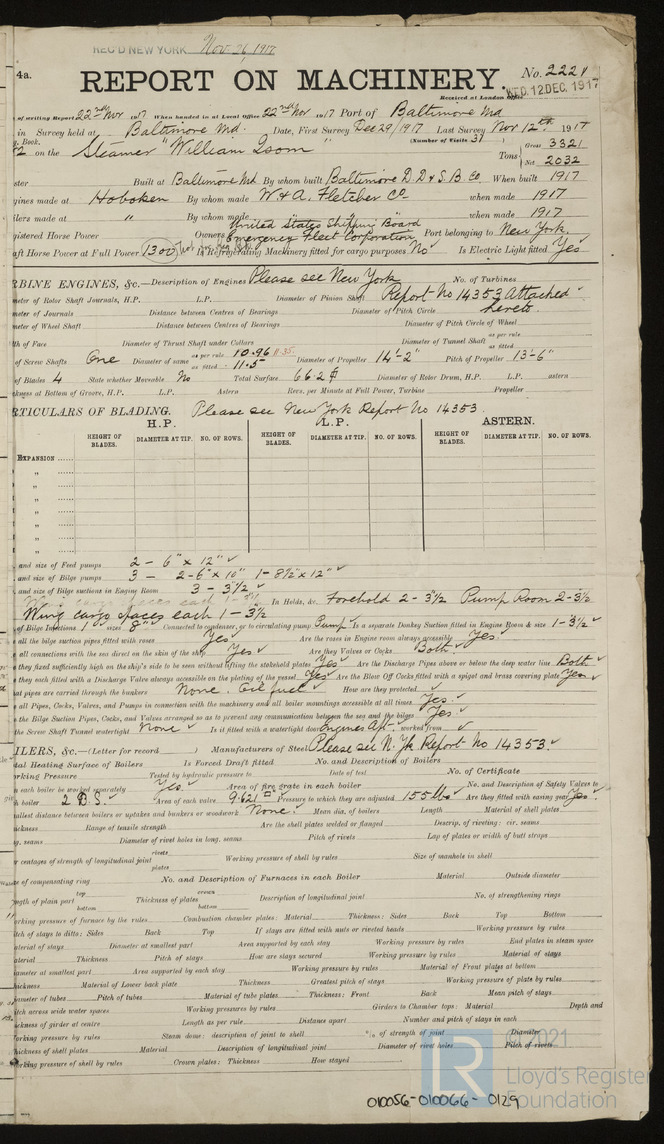 REC'D NEW YORK Nov. 26, 1917
4a.
REPORT ON MACHINERY. No. 2221
Received at London Office WED. 12 DEC. 1917
of writing Report 22nd Nov 1917 When handed in at Local Office 22nd Nov 1917 Port of Baltimore Md
in Survey held at Baltimore Md. Date, First Survey Dec 29/1917 Last Survey Nov 12th 1917
g. Book. (Number of Visits 37)
on the Steamer "William Isom" Tons Gross 3321 Net 2032
ster Built at Baltimore Md By whom built Baltimore D.D & S.B. Co When built 1917
gines made at Hoboken By whom made W. & A. Fletcher Co when made 1917
ilers made at " By whom made when made 1917
gistered Horse Power Owners United States Shipping Board Emergency Fleet Corporation Port belonging to New York
aft Horse Power at Full Power 1300 Is Refrigerating Machinery fitted for cargo purposes No Is Electric Light fitted Yes
RBINE ENGINES, &c.—Description of Engines Please see New York No. of Turbines
meter of Rotor Shaft Journals, H.P. L.P. Diameter of Pinion Shaft Report No 14353 Attached
meter of Journals Distance between Centres of Bearings Diameter of Pitch Circle hereto
meter of Wheel Shaft Distance between Centres of Bearings Diameter of Pitch Circle of Wheel
th of Face Diameter of Thrust Shaft under Collars Diameter of Tunnel Shaft as per rule as fitted
of Screw Shafts One Diameter of same as per rule 10.96 11.35 as fitted 11.5 Diameter of Propeller 14'-2" Pitch of Propeller 13'-6"
of Blades 4 State whether Moveable No Total Surface 66.2 Diameter of Rotor Drum, H.P. L.P. astern
kness at Bottom of Groove, H.P. L.P. Astern Revs. per Minute at Full Power, Turbine Propeller
RTICULARS OF BLADING. Please see New York Report No 14353.
H.P. L.P. ASTERN.
HEIGHT OF BLADES. DIAMETER AT TIP. NO. OF ROWS. HEIGHT OF BLADES. DIAMETER AT TIP. NO. OF ROWS. HEIGHT OF BLADES. DIAMETER AT TIP. NO. OF ROWS.
EXPANSION
"
"
"
"
"
"
"
and size of Feed pumps 2 - 6" x 12"
and size of Bilge pumps 3 - 2-6" x 10" 1- 8½" x 12"
and size of Bilge suctions in Engine Room 3 - 3½
In Holds, &c. Forehold 2 - 3½ Pump Room 2-3½
Wing cargo spaces each 1 - 3½
of Bilge Injections 1 size 8" Connected to condenser, or to circulating pump Pump Is a separate Donkey Suction fitted in Engine Room & size 1 - 3½
e all the bilge suction pipes fitted with roses Yes Are the roses in Engine room always accessible Yes
all connections with the sea direct on the skin of the ship Yes Are they Valves or Cocks Both
e they fixed sufficiently high on the ship's side to be seen without lifting the stokehold plates Yes Are the Discharge Pipes above or below the deep water line Both
e they each fitted with a Discharge Valve always accessible on the plating of the vessel Yes Are the Blow Off Cocks fitted with a spigot and brass covering plate Yes
at pipes are carried through the bunkers None. Oil fuel How are they protected
e all Pipes, Cocks, Valves, and Pumps in connection with the machinery and all boiler mountings accessible at all times Yes
e the Bilge Suction Pipes, Cocks, and Valves arranged so as to prevent any communication between the sea and the bilges Yes
the Screw Shaft Tunnel watertight None Is it fitted with a watertight door Engines Aft. worked from
ILERS, &c.—(Letter for record ) Manufacturers of Steel Please see N. Yk Report No 14353
tal Heating Surface of Boilers Is Forced Draft fitted No. and Description of Boilers
rking Pressure Tested by hydraulic pressure to Date of test No. of Certificate
n each boiler be worked separately Yes Area of fire grate in each boiler No. and Description of Safety Valves to
h boiler 2 D.S. Area of each valve 9.621 Pressure to which they are adjusted 155 lbs Are they fitted with easing gear Yes.
allest distance between boilers or uptakes and bunkers or woodwork None. Mean dia. of boilers Length Material of shell plates
ickness Range of tensile strength Are the shell plates welded or flanged Descrip. of riveting: cir. seams
g. seams Diameter of rivet holes in long. seams Pitch of rivets Lap of plates or width of butt straps
r centages of strength of longitudinal joint rivets plates Working pressure of shell by rules Size of manhole in shell
e of compensating ring No. and Description of Furnaces in each Boiler Material Outside diameter
ngth of plain part top bottom Thickness of plates crown bottom Description of longitudinal joint No. of strengthening rings
orking pressure of furnace by the rules Combustion chamber plates: Material Thickness: Sides Back Top Bottom
itch of stays to ditto: Sides Back Top If stays are fitted with nuts or riveted heads Working pressure by rules
aterial of stays Diameter at smallest part Area supported by each stay Working pressure by rules End plates in steam space
aterial Thickness Pitch of stays How are stays secured Working pressure by rules Material of stays
iameter at smallest part Area supported by each stay Working pressure by rules Material of Front plates at bottom
hickness Material of Lower back plate Thickness Greatest pitch of stays Working pressure of plate by rules
iameter of tubes Pitch of tubes Material of tube plates Thickness: Front Back Mean pitch of stays
itch across wide water spaces Working pressures by rules Girders to Chamber tops: Material Depth and
hickness of girder at centre Length as per rule Distance apart Number and pitch of stays in each
orking pressure by rules Steam dome: description of joint to shell % of strength of joint Diameter
hickness of shell plates Material Description of longitudinal joint Diameter of rivet holes Pitch of rivets
orking pressure of shell by rules Crown plates: Thickness How stayed
LR © 2021
Lloyd's Register
Foundation
010056-010066-0129